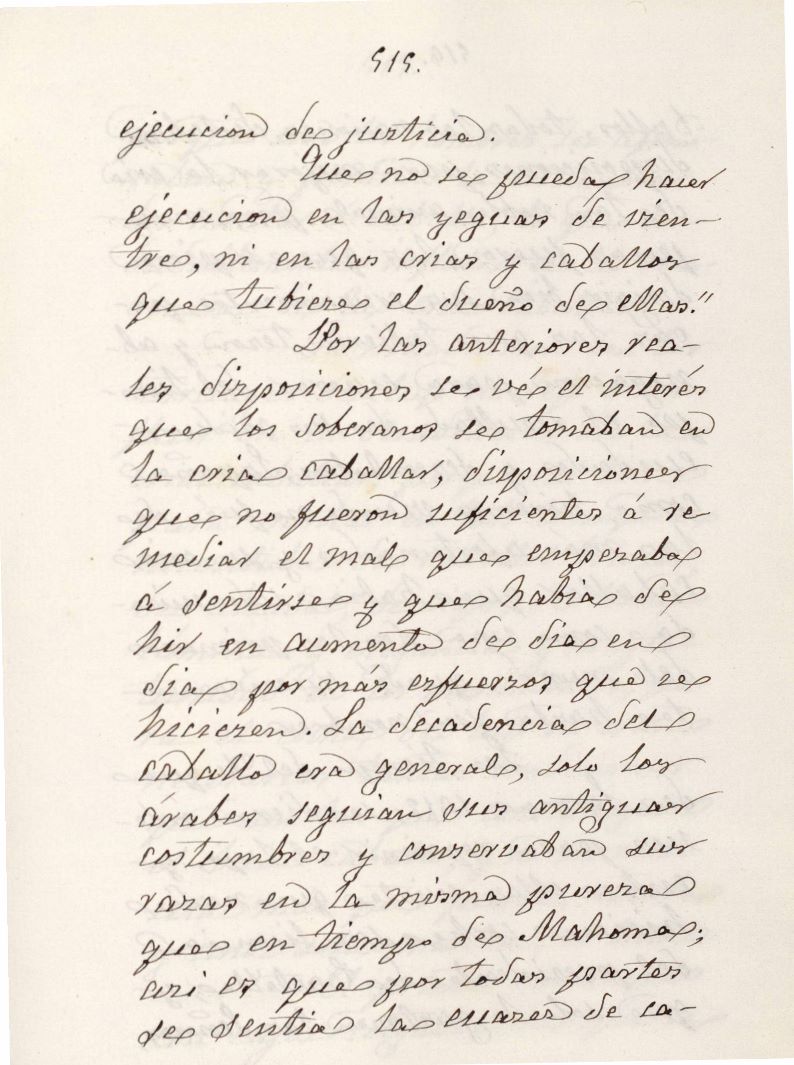 515.
ejecucion de justicia.
Que no se pueda hacer
ejecucion en las yeguas de vien-
tre, ni en las crias y caballos
que tubiere el dueño de ellas."
Por las anteriores rea-
les disposiciones se vé el interés
que los soberanos se tomaban en
la cria caballar, disposiciones
que no fueron suficientes á re
mediar el mal que empezaba
á sentirse y que habia de
hir en aumento de dia en
dia por más esfuerzos que se
hicieren. La decadencia del
caballo era general, solo los
árabes seguian sus antiguas
costumbres y conservaban sus
razas en la misma pureza
que en tiempo de Mahoma;
asi es que por todas partes
se sentia la escasez de ca-